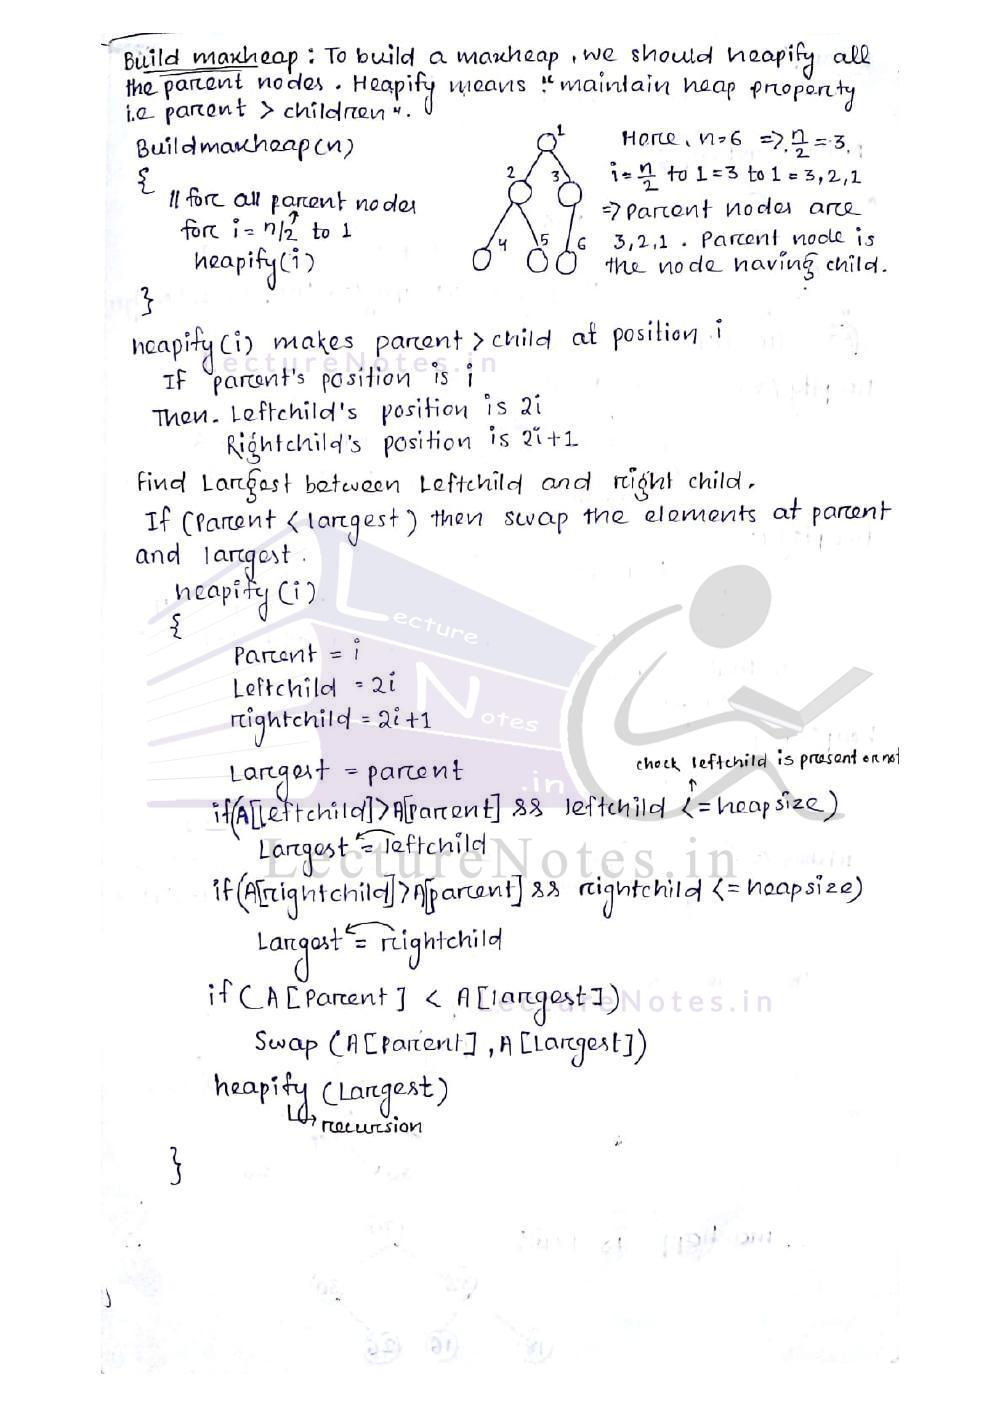 Build maxheap : To build a maxheap , we should heapify all
the parent nodes . Heapify means " maintain heap property
i.e parent > children " .
Buildmaxheap(n)
{
// for all parent nodes
for i = n/2 to 1
heapify(i)
}
1
2
3
4
5
6
Here , n=6 => n/2 = 3 ,
i = n/2 to 1 = 3 to 1 = 3, 2, 1
=> parent nodes are
3, 2, 1 . Parent node is
the node having child .
heapify(i) makes parent > child at position i
LectureNotes.in
If parent's position is i
Then . Leftchild's position is 2i
Rightchild's position is 2i+1
Find Largest between Leftchild and right child .
If (Parent < largest) then swap the elements at parent
and largest .
heapify (i)
{
Lecture
Notes
.in
Parent = i
Leftchild = 2i
rightchild = 2i+1
Largest = parent
check leftchild is present or not
if(A[Leftchild]>A[Parent] && leftchild <= heapsize)
Largest = leftchild
LectureNotes.in
if(A[rightchild]>A[parent] && rightchild <= heapsize)
Largest = rightchild
if (A[Parent] < A[largest])
LectureNotes.in
Swap (A[Parent] , A[Largest])
heapify (Largest)
↳ recursion
}